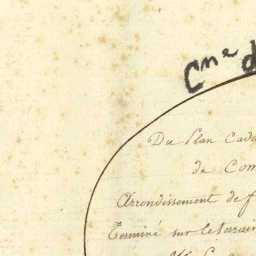 Cne d
Du Plan Cada
de Com
Arrondissement de f
Terminé sur le terrain